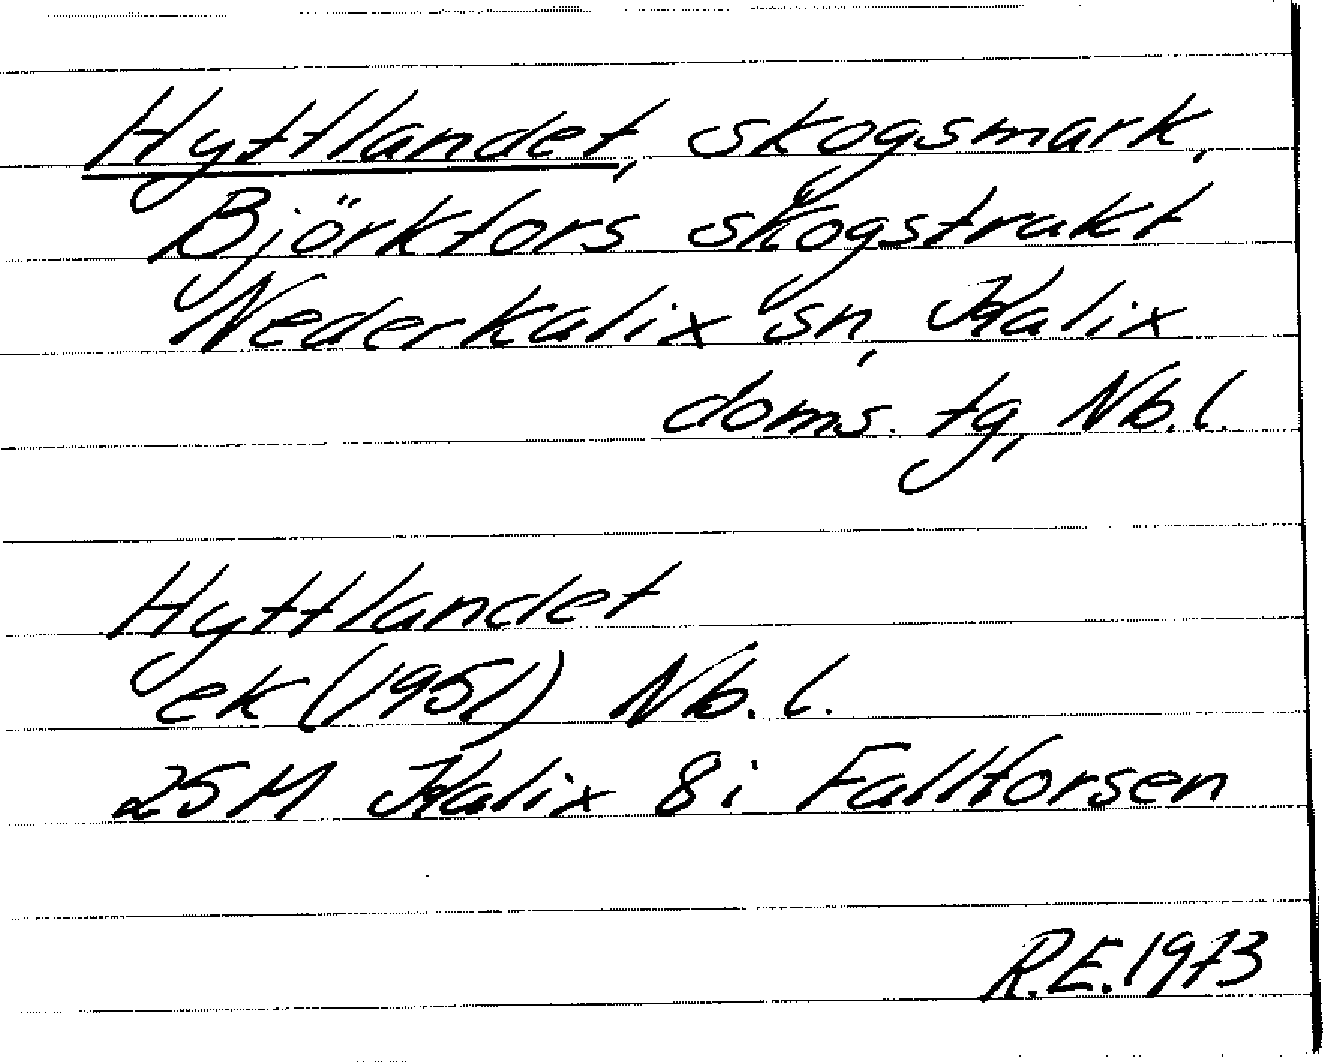 Hyttlandet, skogsmark,
Björkfors skogstrakt
Nederkalix sn, Kalix
doms. tg, Nb.l.
Hyttlandet
ek (1951) Nb.l.
25M Kalix 8i Fallforsen
R.E. 1973